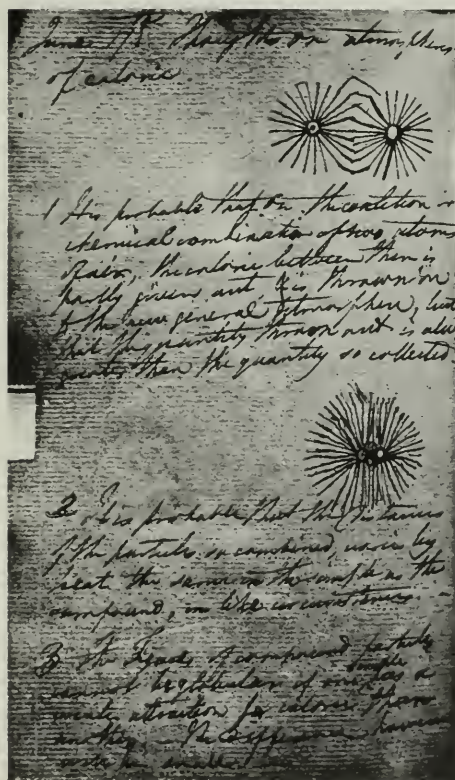 June Thoughts on atmospheres
of caloric
1 It is probable that on the coalition or
chemical combination of two atoms
of air, the caloric between them is
partly given out & is thrown on
to the new general atmosphere, but
that the quantity thrown out is always
greater than the quantity so collected
2 It is probable that the distances
of the particles so combined, varies by
heat the same in the simple as the
compound, in like circumstances.
3 The figures of compound particles
cannot be globular if one simple has a
greater attraction for caloric than
another. The difference however